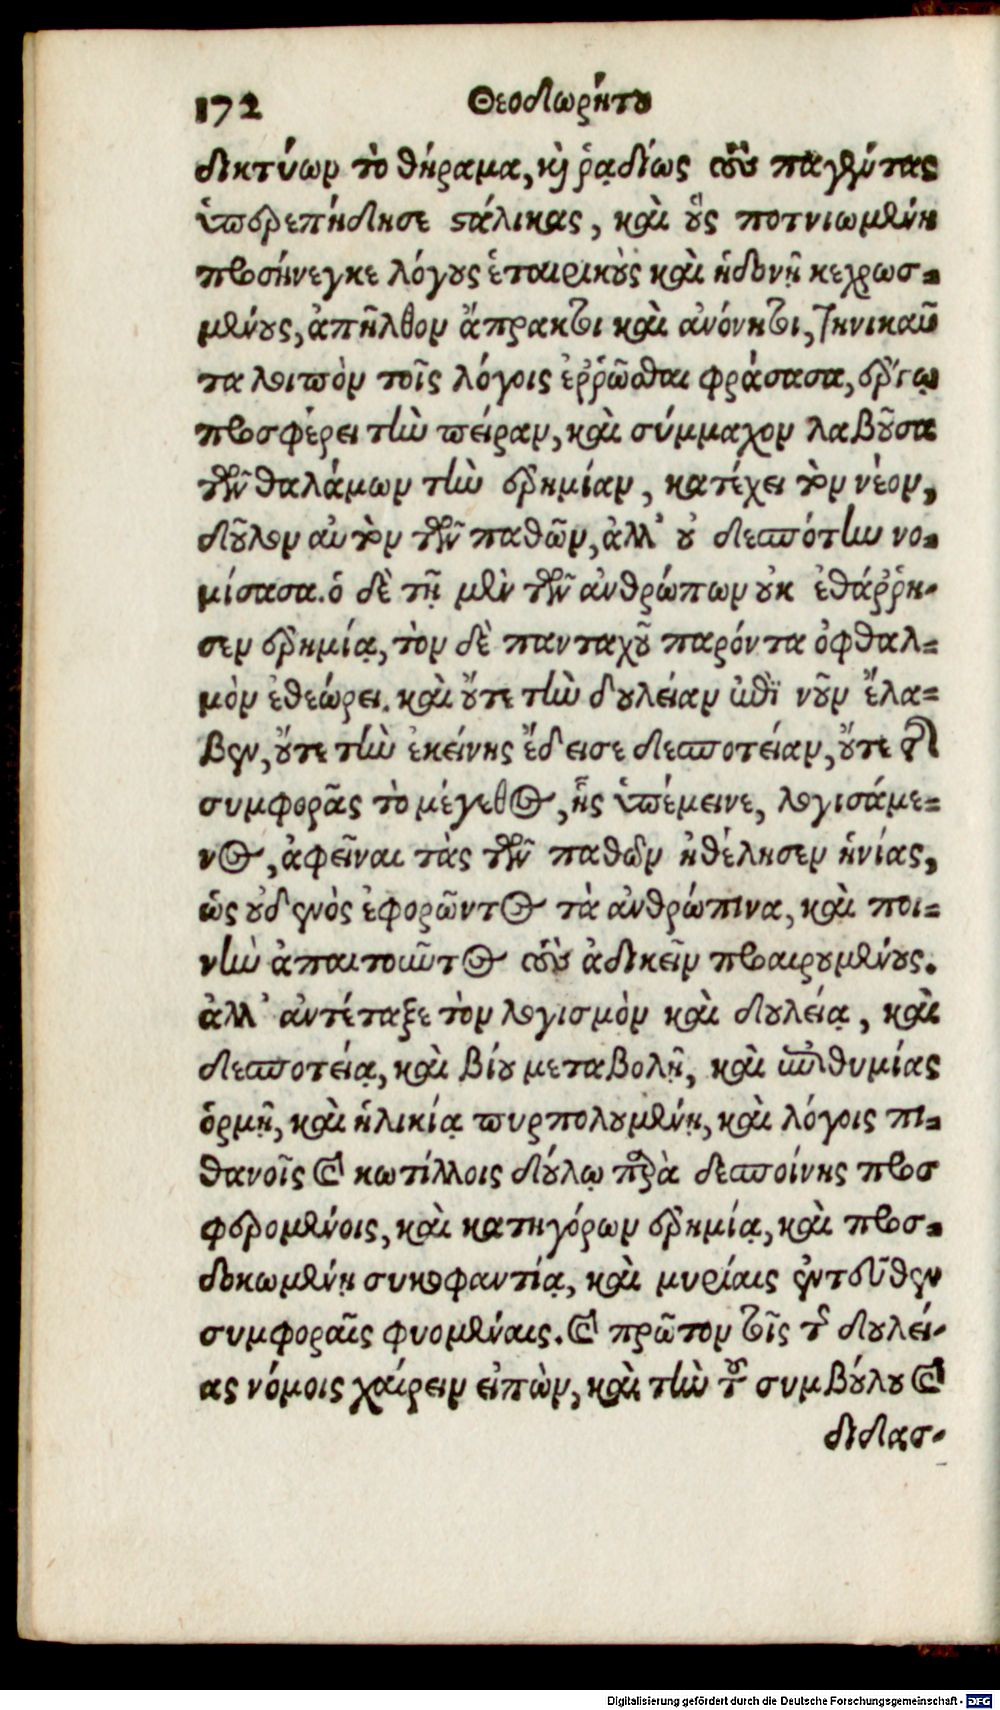 172 Θεοδωρήτου
δικτύων τὸ θήραμα, καὶ ῥᾳδίως τοὺς παγέντας
ὑπερεπήδησε στάλικας, καὶ οὓς ποτνιωμένη
προσήνεγκε λόγους ἑταιρικοὺς καὶ ἡδονῇ κεχρωσ-
μένους, ἀπῆλθον ἄπρακτοι καὶ ἀνόνητοι, τηνικαῦ
τα λοιπὸν τοῖς λόγοις ἐῤῥῶσθαι φράσασα, ἔργῳ
προσφέρει τὴν πεῖραν, καὶ σύμμαχον λαβοῦσα
τῶν θαλάμων τὴν ἐρημίαν, κατέχει τὸν νέον,
δοῦλον αὐτὸν τῶν παθῶν, ἀλλ' οὐ δεσπότην νο-
μίσασα. ὁ δὲ τῇ μὲν τῶν ἀνθρώπων οὐκ ἐθάῤῥη-
σεν ἐρημίᾳ, τὸν δὲ πανταχοῦ παρόντα ὀφθαλ-
μὸν ἐθεώρει. καὶ οὔτε τὴν δουλείαν ἐπὶ νοῦν ἔλα-
βεν, οὔτε τὴν ἐκείνης ἔδεισε δεσποτείαν, οὔτε τῆς
συμφορᾶς τὸ μέγεθος, ἧς ὑπέμεινε, λογισάμε-
νος, ἀφεῖναι τὰς τῶν παθῶν ἠθέλησεν ἡνίας,
ὡς οὐδενὸς ἐφορῶντος τὰ ἀνθρώπινα, καὶ ποι-
νὴν ἀπαιτοῦντος τοὺς ἀδικεῖν προαιρουμένους.
ἀλλ' ἀντέταξε τὸν λογισμὸν καὶ δουλείᾳ, καὶ
δεσποτείᾳ, καὶ βίου μεταβολῇ, καὶ ἐπιθυμίας
ὁρμῇ, καὶ ἡλικίᾳ πυρπολουμένῃ, καὶ λόγοις πι-
θανοῖς καὶ κωτίλλοις δούλῳ παρὰ δεσποίνης προσ
φερομένοις, καὶ κατηγόρων ἐρημίᾳ, καὶ προσ-
δοκωμένῃ συκοφαντίᾳ, καὶ μυρίαις ἐντεῦθεν
συμφοραῖς φυομέναις. καὶ πρῶτον τοῖς τῆς δουλεί-
ας νόμοις χαίρειν εἰπὼν, καὶ τὴν τοῦ συμβούλου καὶ
διδασ-
Digitalisierung gefördert durch die Deutsche Forschungsgemeinschaft - DFG